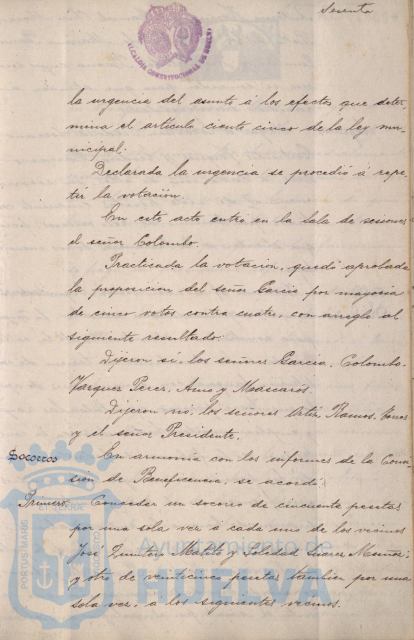 Sesenta
ALCALDIA CONSTITUCIONAL DE HUELVA
la urgencia del asunto á los efectos que deter-
mina el artículo ciento cinco de la ley mu-
nicipal.
Declarada la urgencia se procedió á repe-
tir la votación.
En este acto entró en la Sala de sesiones
el señor Colombo.
Practicada la votación, quedó aprobada
la proposicion del señor García por mayoría
de cinco votos contra cuatro, con arreglo al
siguiente resultado:
Dijeron sí, los señores García, Colombo,
Vázquez Perez, Amo y Mascarós.
Dijeron nó, los señores Ortiz, Ramos,
y el señor Presidente.
Socorros
En armonía con los informes de la Comi-
sión de Beneficencia, se acordó:
Primero.- Conceder un socorro de cincuenta pesetas
por una sola vez á cada uno de los vecinos
José Matito y Soledad Suarez Muñoz;
y otro de veinticinco pesetas tambien por una
sola vez, á los siguientes vecinos.
PORTUS MARIS
Ayuntamiento de
HUELVA